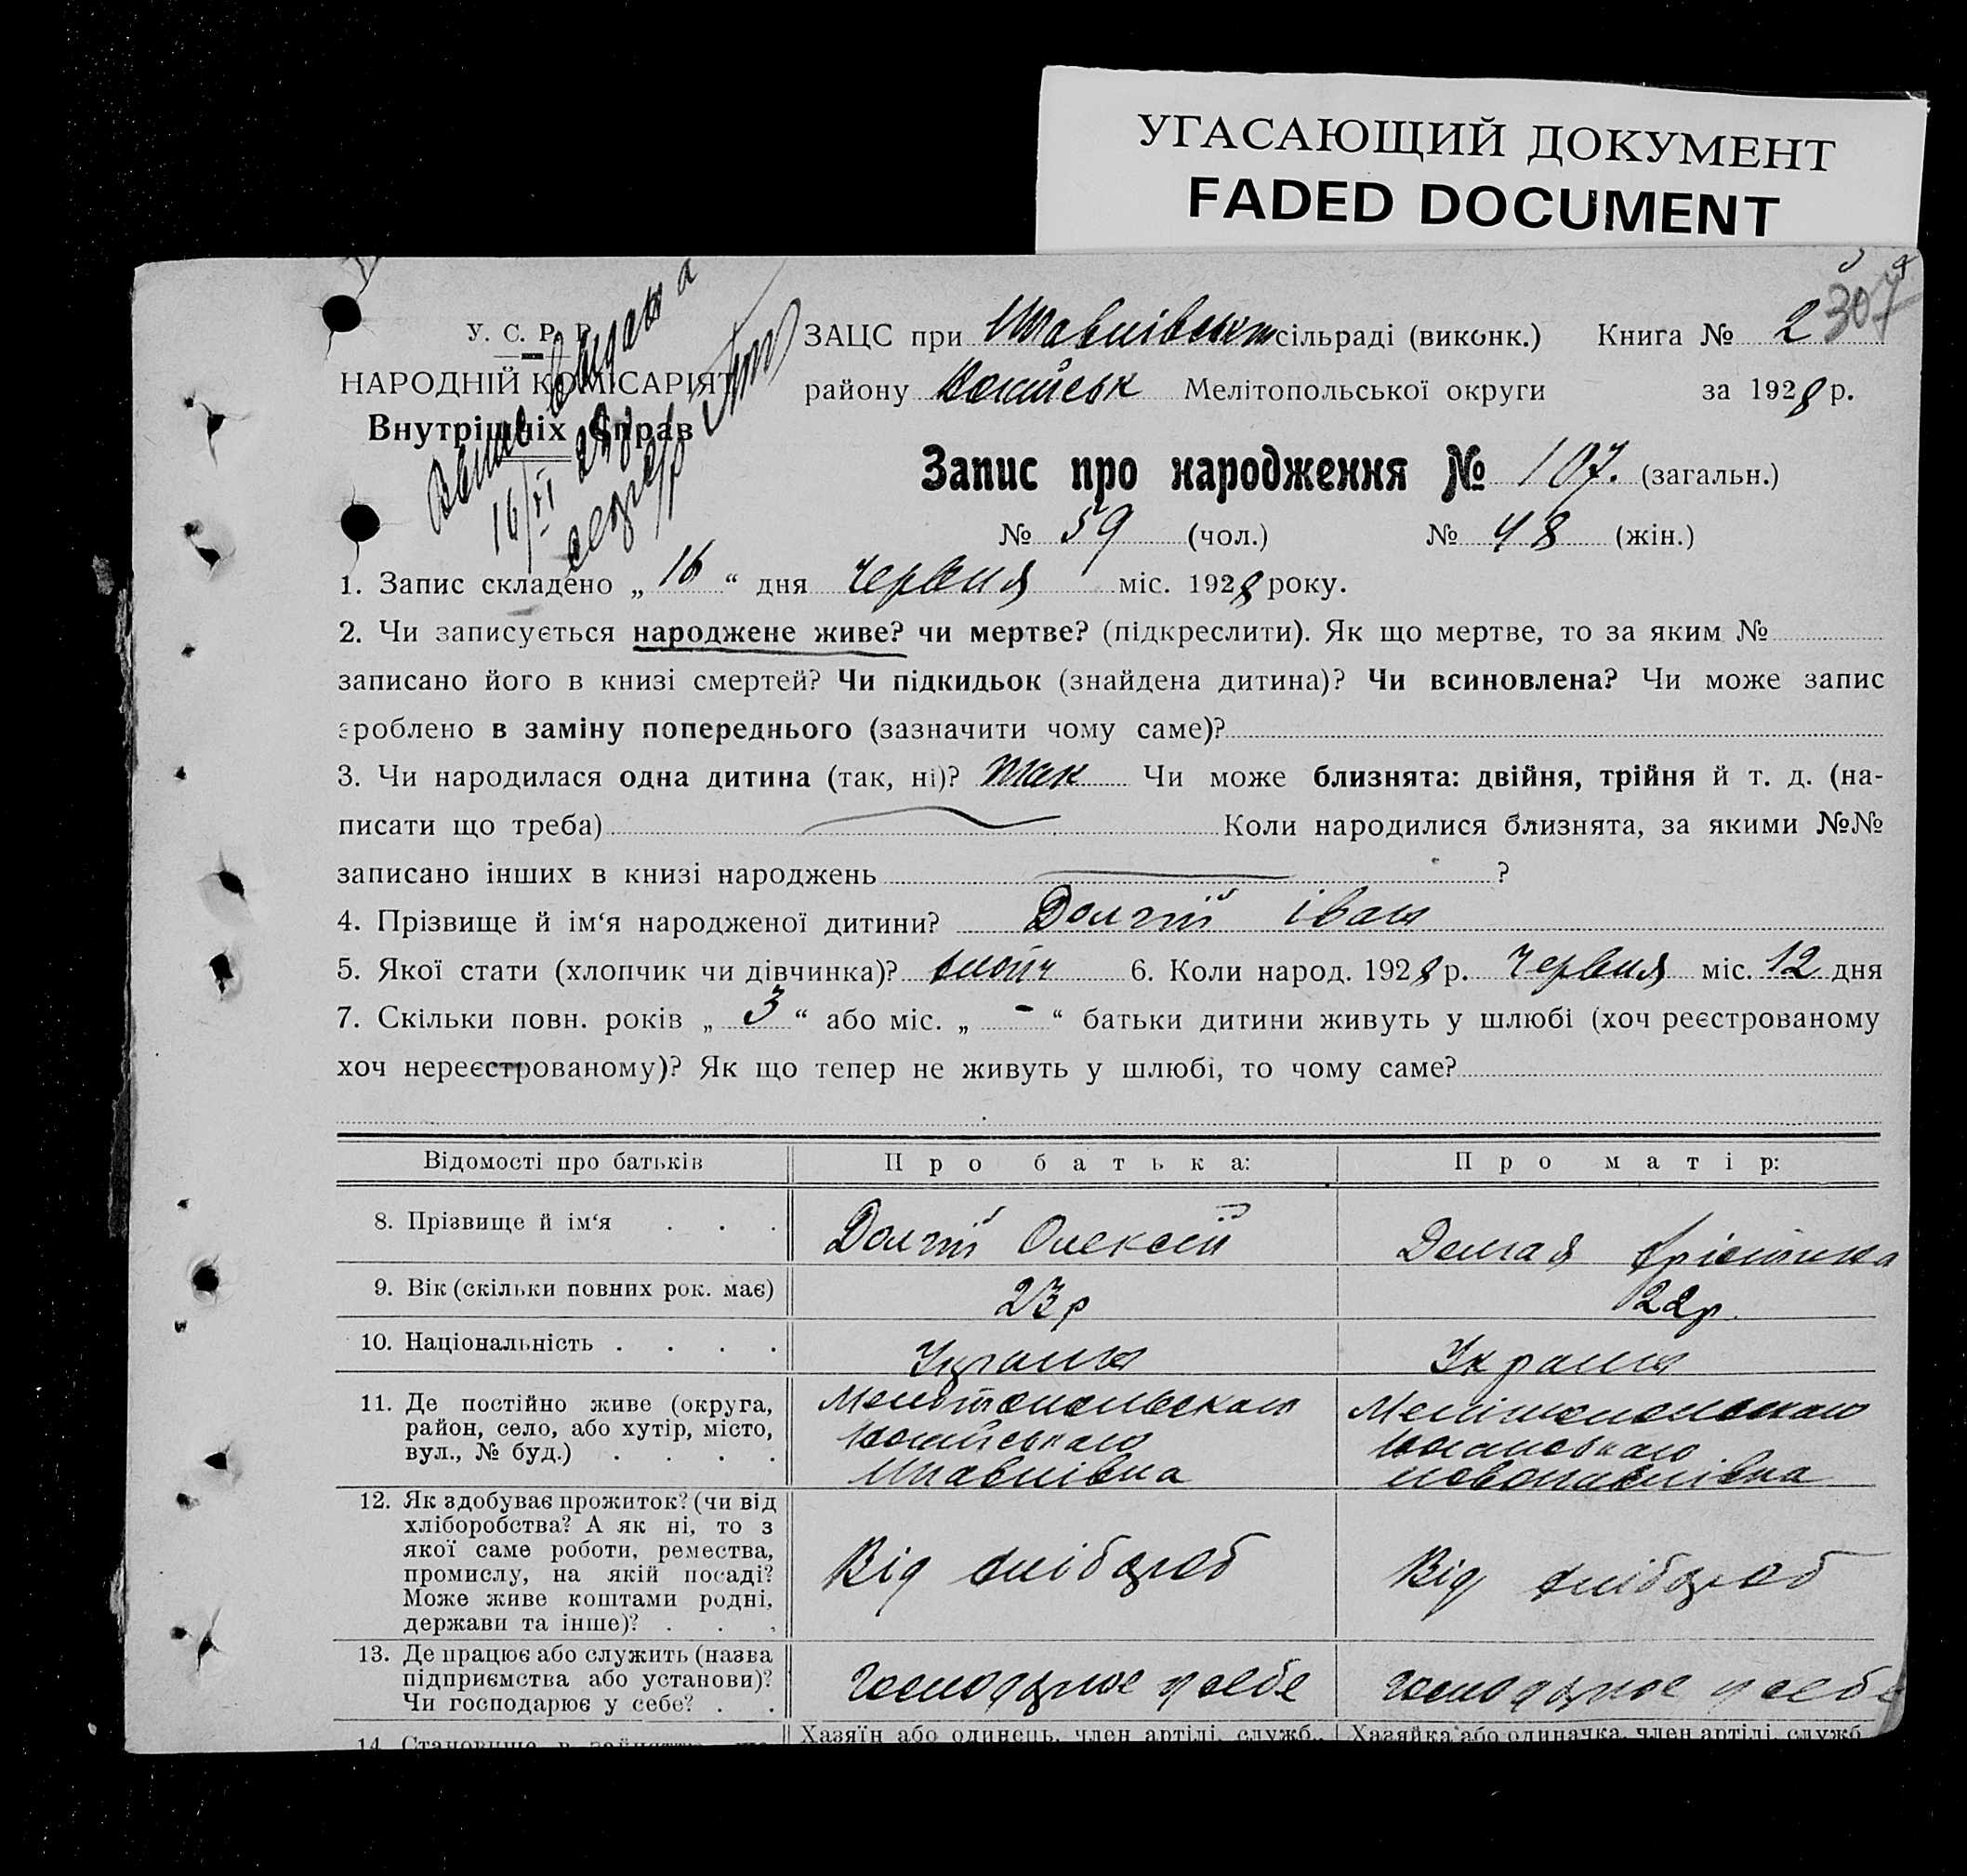 УГАСАЮЩИЙ ДОКУМЕНТ
FADED DOCUMENT
307
У. С. Р. Р.
НАРОДНІЙ КОМІСАРІЯТ
Внутрішніх Справ
16/VI 28
ЗАЦС при сільраді (виконк.) Книга № 2
району Мелітопольської округи за 1928 р.
Запис про народження № 107. (загальн.)
№ 59 (чол.) № 48 (жін.)
1. Запис складено „ 16 “ дня червня міс. 1928 року.
2. Чи записується народжене живе? чи мертве? (підкреслити). Як що мертве, то за яким №
записано його в книзі смертей? Чи підкидьок (знайдена дитина)? Чи всиновлена? Чи може запис
зроблено в заміну попереднього (зазначити чому саме)?
3. Чи народилася одна дитина (так, ні)? так Чи може близнята: двійня, трійня й т. д. (на-
писати що треба) Коли народилися близнята, за якими №№
записано інших в книзі народжень ?
4. Прізвище й ім‘я народженої дитини? Долгий Іван
5. Якої стати (хлопчик чи дівчинка)? хлопч 6. Коли народ. 1928 р. червня міс. 12 дня
7. Скільки повн. років „ 3 “ або міс. „ - “ батьки дитини живуть у шлюбі (хоч реєстрованому
хоч нереєстрованому)? Як що тепер не живуть у шлюбі, то чому саме?
Відомості про батьків Про батька: Про матір:
8. Прізвище й ім‘я . . . Долгий Олексій Долгая Христина
9. Вік (скільки повних рок. має) 23 р 22 р.
10. Національність . . . . Україн Україн
11. Де постійно живе (округа,
район, село, або хутір, місто,
вул., № буд.) . . . .
12. Як здобуває прожиток? (чи від
хліборобства? А як ні, то з
якої саме роботи, ремества,
промислу, на якій посаді?
Може живе коштами родні,
держави та інше)? . . .
Від хлібороб Від хлібороб
13. Де працює або служить (назва
підприємства або установи)?
Чи господарює у себе? . .
господарює у себе господарює у себе
14. Становище в
Хазяїн або одинець, член артілі, служб., Хазяйка або одиначка, член артілі, служб